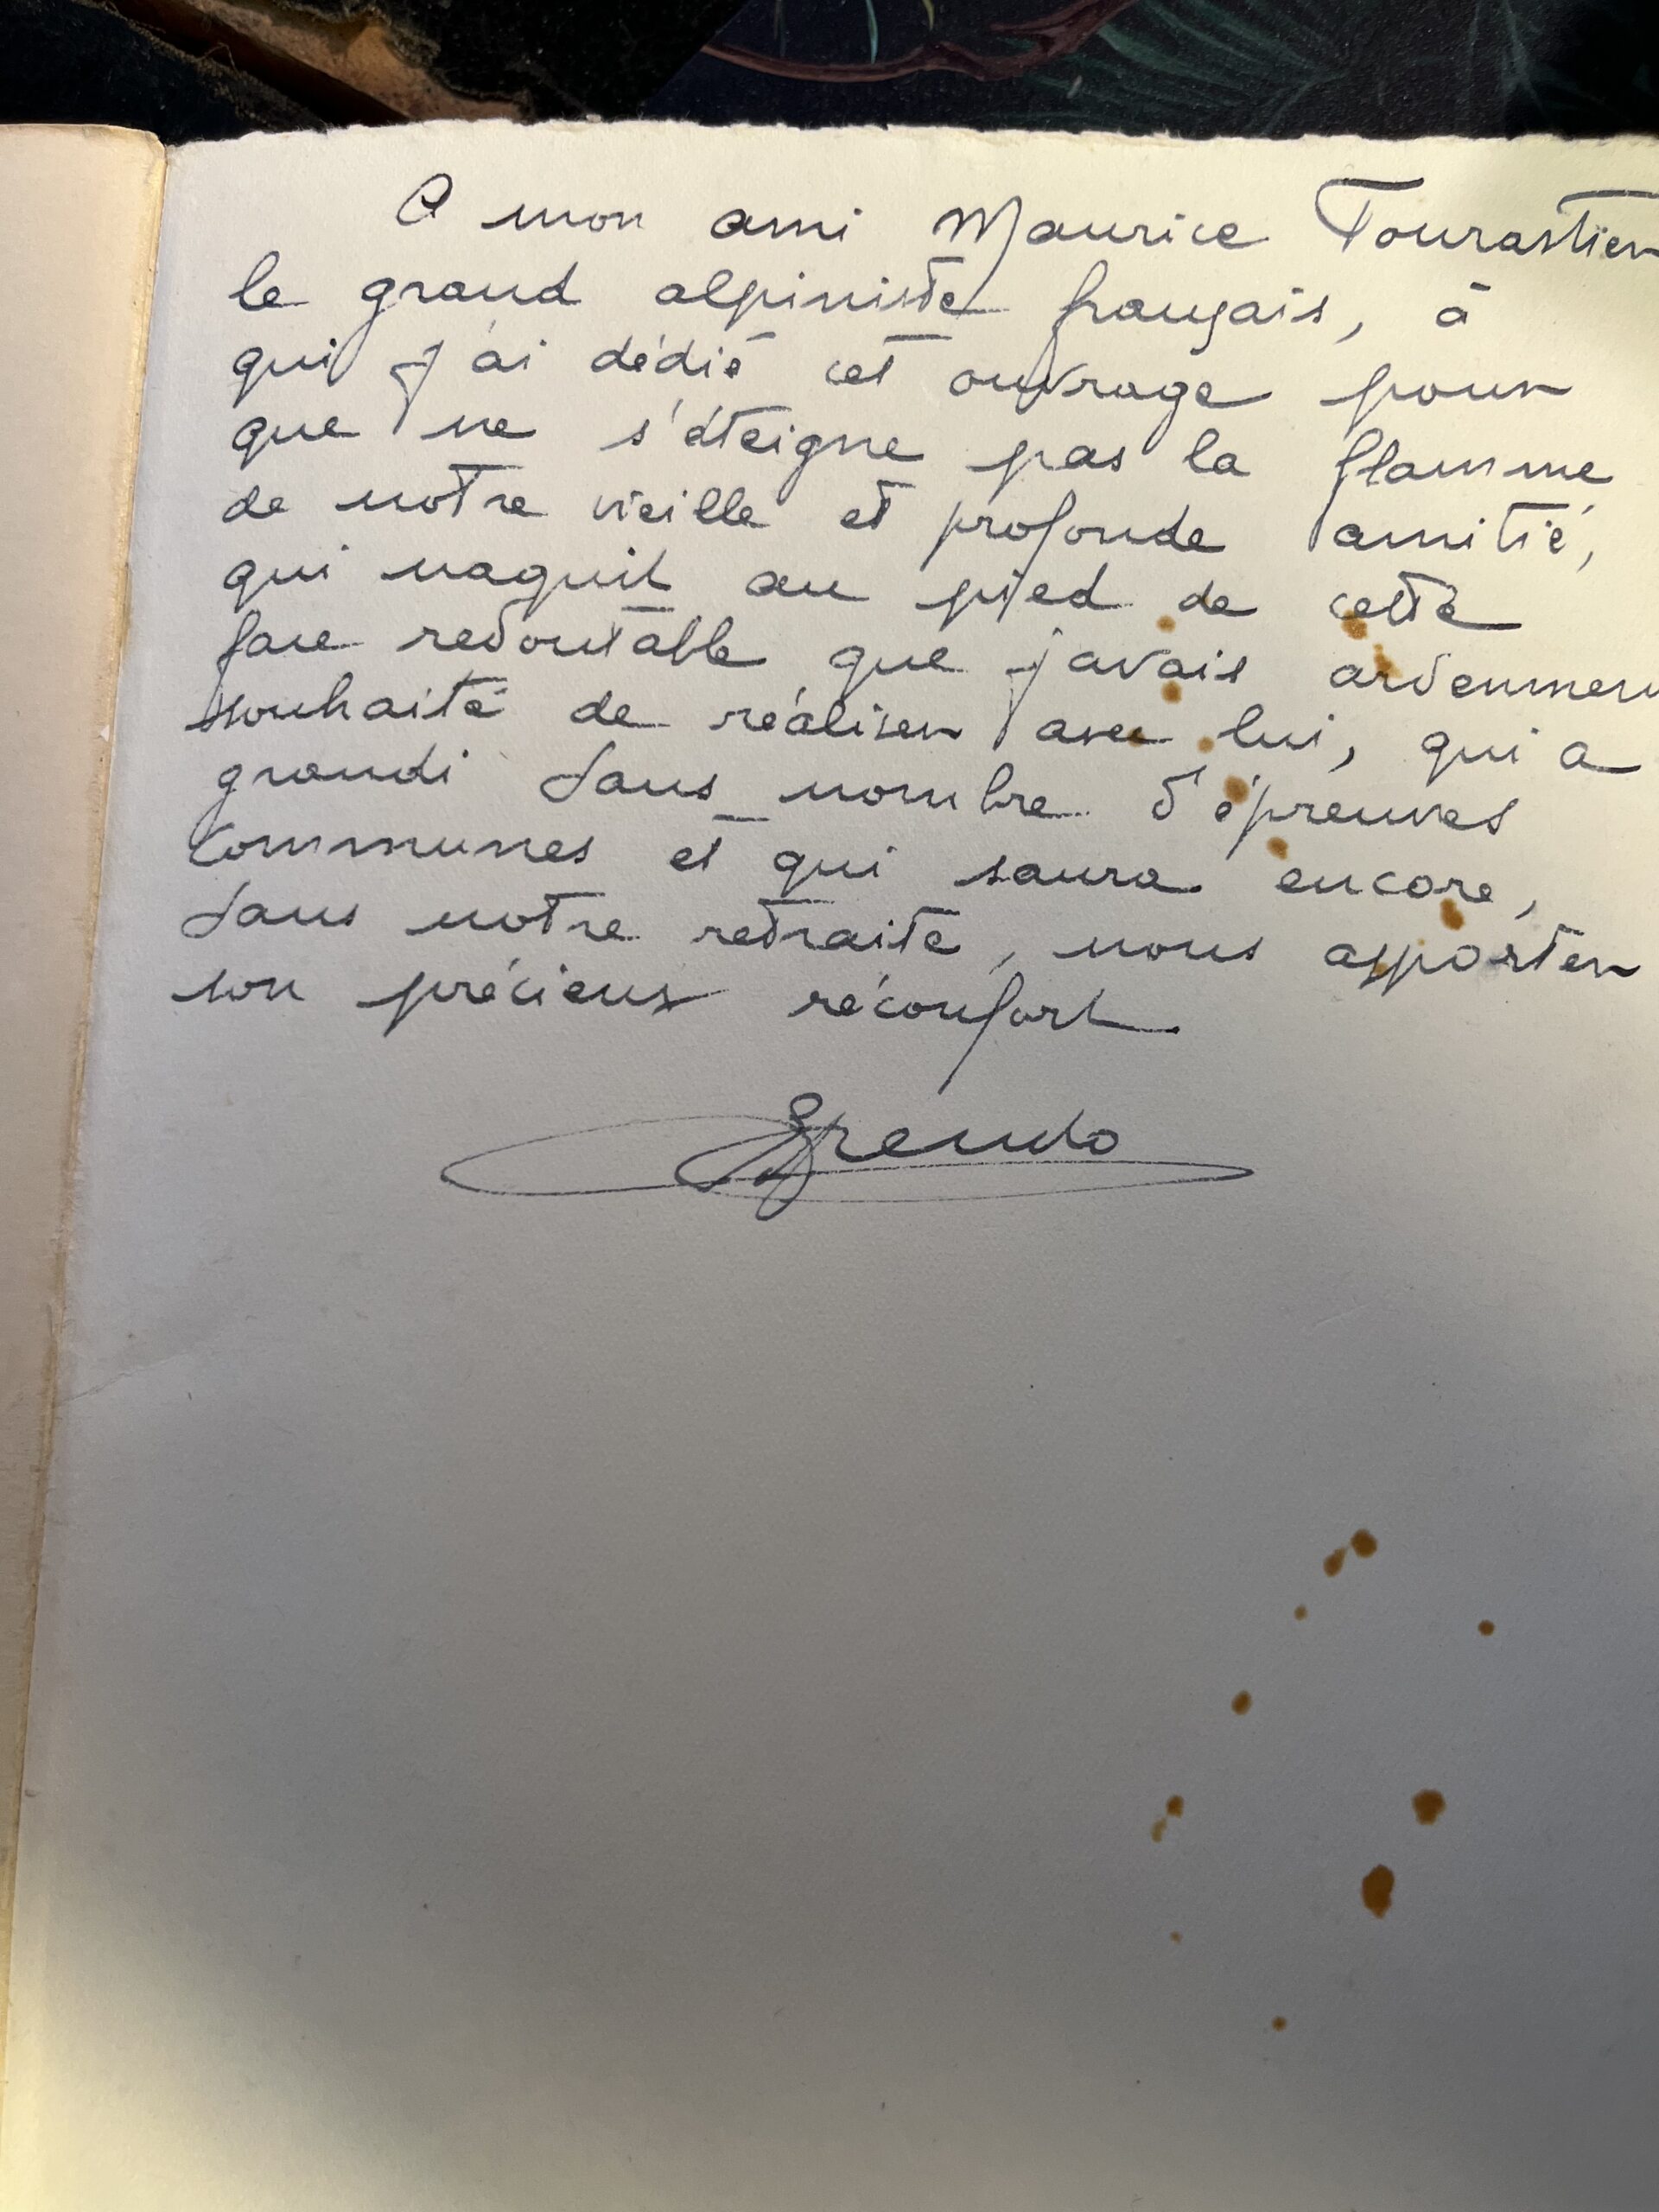 A mon ami Maurice Fourastier
le grand alpiniste français, à
qui j'ai dédié cet ouvrage pour
que ne s'éteigne pas la flamme
de notre vieille et profonde amitié,
qui naquit au pied de cette
face redoutable que j'avais ardemment
souhaité de réaliser avec lui, qui a
grandi dans nombre d'épreuves
communes et qui saura encore,
dans notre retraite, nous apporter
son précieux réconfort
Frendo